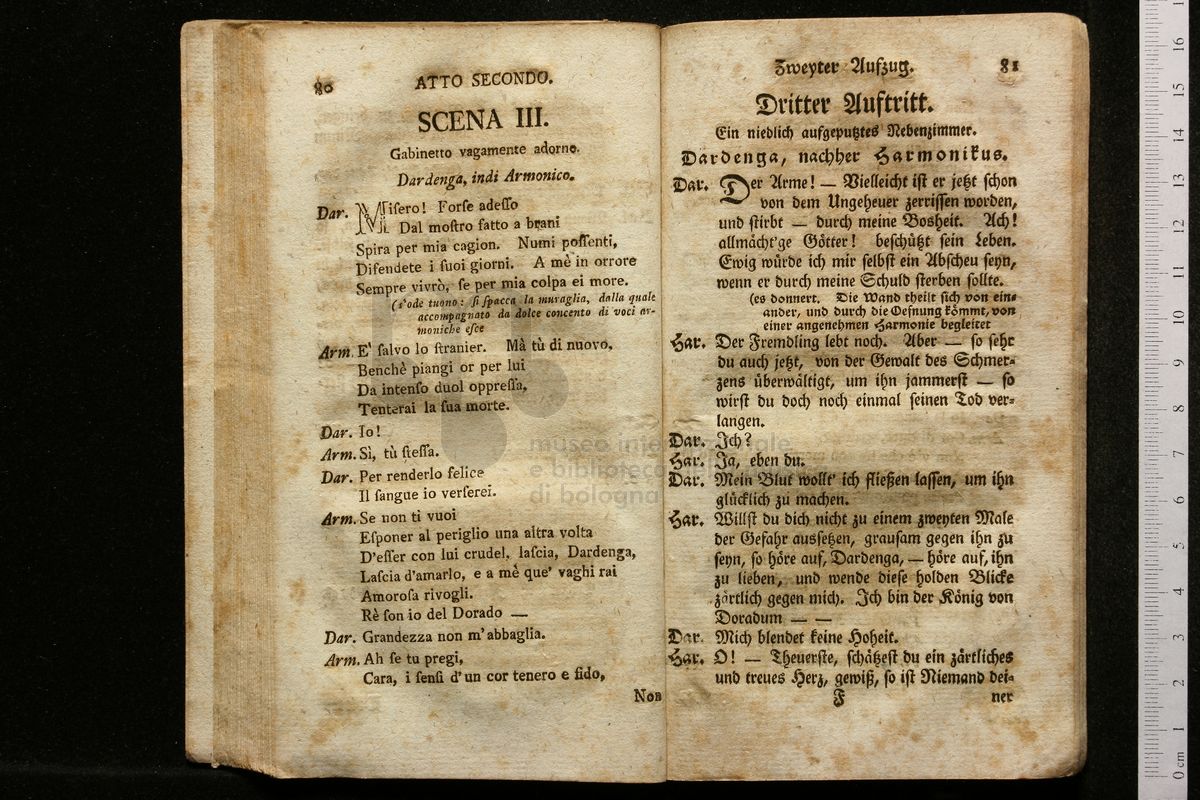 80
ATTO SECONDO.
SCENA III.
Gabinetto vagamente adorno.
Dardenga, indi Armonico.
Dar. Miſero! Forſe adeſſo
Dal moſtro fatto a brani
Spira per mia cagion. Numi poſſenti,
Difendete i ſuoi giorni. A mè in orrore
Sempre vivrò, ſe per mia colpa ei more.
(s'ode tuono: ſi ſpacca la muraglia, dalla quale
accompagnato da dolce concento di voci ar-
moniche eſce
Arm. E' ſalvo lo ſtranier. Mà tù di nuovo,
Benchè piangi or per lui
Da intenſo duol oppreſſa,
Tenterai la ſua morte.
Dar. Io!
Arm. Sì, tù ſteſſa.
Dar. Per renderlo felice
Il ſangue io verſerei.
Arm. Se non ti vuoi
Eſponer al periglio una altra volta
D'eſſer con lui crudel, laſcia, Dardenga,
Laſcia d'amarlo, e a mè que' vaghi rai
Amoroſa rivogli.
Rè ſon io del Dorado —
Dar. Grandezza non m'abbaglia.
Arm. Ah ſe tu pregi,
Cara, i ſenſi d'un cor tenero e fido,
Non
Zweyter Aufzug.
81
Dritter Auftritt.
Ein niedlich aufgeputztes Nebenzimmer.
Dardenga, nachher Harmonikus.
Dar. Der Arme! — Vielleicht ist er jetzt schon
von dem Ungeheuer zerrissen worden,
und stirbt — durch meine Bosheit. Ach!
allmächt'ge Götter! beschützt sein Leben.
Ewig würde ich mir selbst ein Abscheu seyn,
wenn er durch meine Schuld sterben sollte.
(es donnert. Die Wand theilt sich von ein-
ander, und durch die Oefnung kömmt, von
einer angenehmen Harmonie begleitet
Har. Der Fremdling lebt noch. Aber — so sehr
du auch jetzt, von der Gewalt des Schmer-
zens überwältigt, um ihn jammerst — so
wirst du doch noch einmal seinen Tod ver-
langen.
Dar. Ich?
Har. Ja, eben du.
Dar. Mein Blut wollt' ich fließen lassen, um ihn
glücklich zu machen.
Har. Willst du dich nicht zu einem zweyten Male
der Gefahr aussetzen, grausam gegen ihn zu
seyn, so höre auf, Dardenga, — höre auf, ihn
zu lieben, und wende diese holden Blicke
zärtlich gegen mich. Ich bin der König von
Doradum — —
Dar. Mich blendet keine Hoheit.
Har. O! — Theuerste, schätzest du ein zärtliches
und treues Herz, gewiß, so ist Niemand dei-
F
ner
museo internazionale
e biblioteca
di bologna
0 cm 1 2 3 4 5 6 7 8 9 10 11 12 13 14 15 16